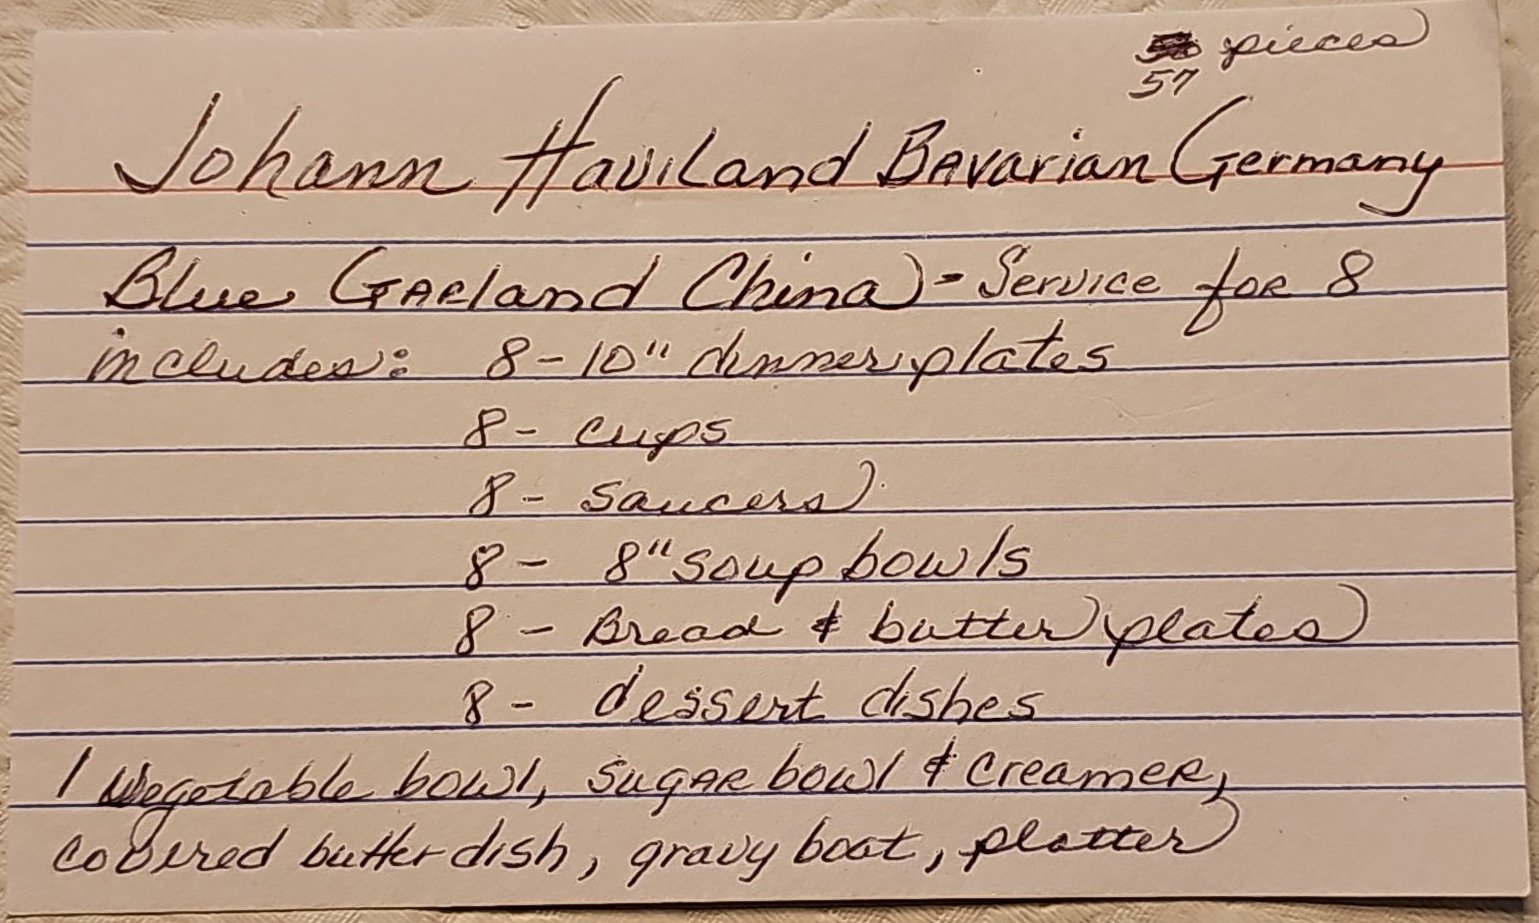 pieces
57
Johann Haviland Bavarian Germany
Blue Garland China - Service for 8
includes: 8 - 10" dinner plates
8 - cups
8 - saucers
8 - 8" soup bowls
8 - Bread & butter plates
8 - dessert dishes
1 vegetable bowl, sugar bowl & creamer,
covered butter dish, gravy boat, platter